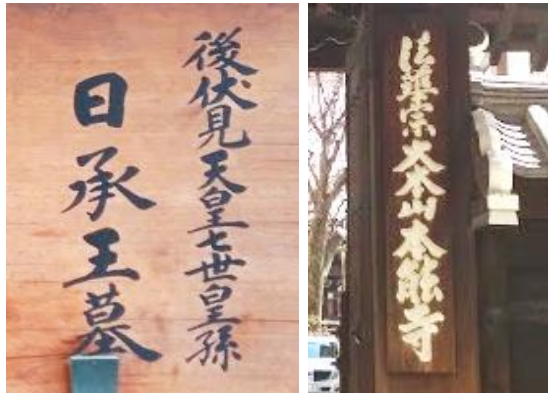 後伏見天皇七世皇孫
日承王墓
法華宗大本山本能寺